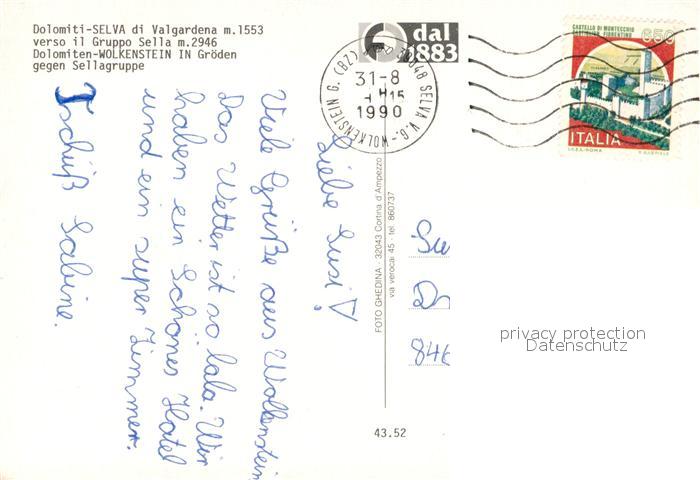 Dolomiti-SELVA di Valgardena m.1553
verso il Gruppo Sella m.2946
Dolomiten-WOLKENSTEIN IN Gröden
gegen Sellagruppe
dal
1883
39048 SELVA V.G.-WOLKENSTEIN G. (BZ)
31-8
1990
CASTELLO DI MONTECCHIO
CASTIGLION FIORENTINO
650
ITALIA
I.P.Z.S.-ROMA
Liebe Susi!
Viele Grüße aus Wolkenstein
Das Wetter ist so lala. Wir
haben ein Schönes Hotel
und ein super Zimmer.
Tschüß Sabine.
FOTO GHEDINA - 32043 Cortina d'Ampezzo
via verocai 45 tel. 860737
Su
846
privacy protection
Datenschutz
43.52